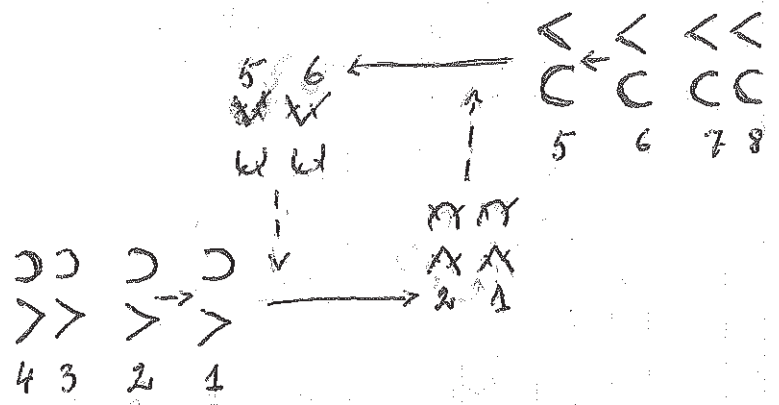 5 6
5 6 7 8
2 1
4 3 2 1